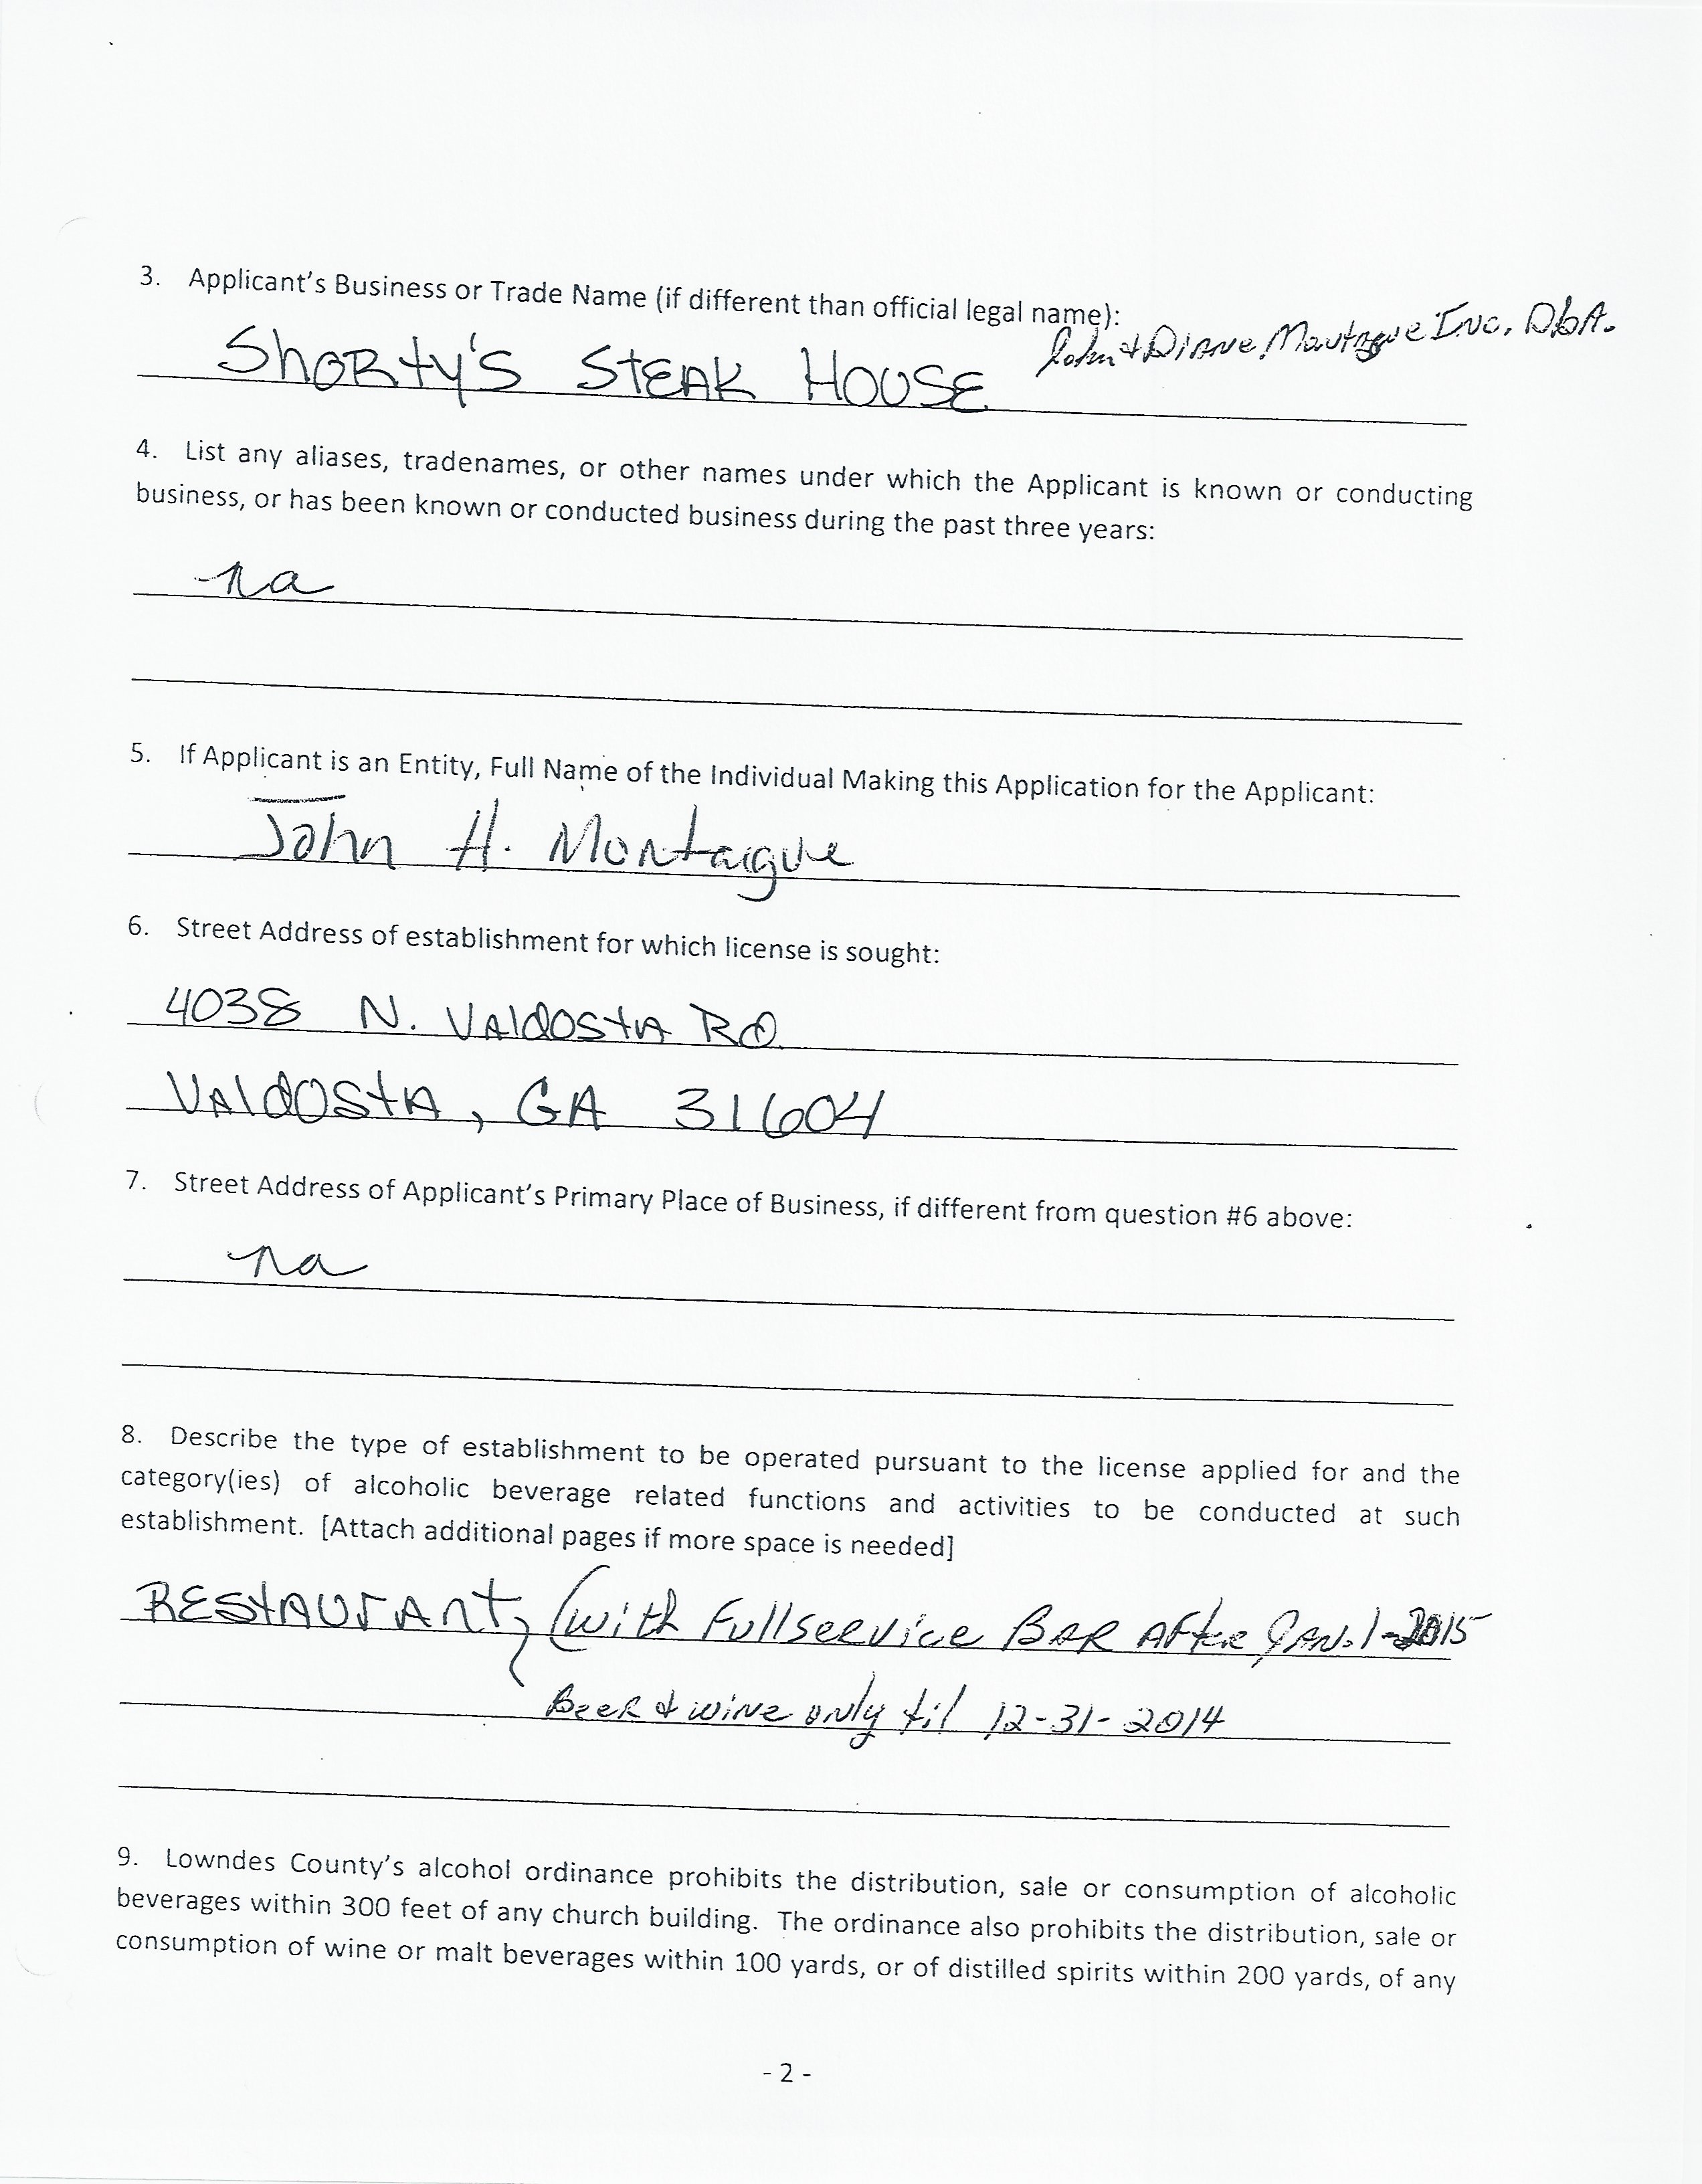 3. Applicant's Business or Trade Name (if different than official legal name):
John & Diane Montague Inc. DbA.
ShORty'S STEAK HOUSE
4. List any aliases, tradenames, or other names under which the Applicant is known or conducting
business, or has been known or conducted business during the past three years:
na
5. If Applicant is an Entity, Full Name of the Individual Making this Application for the Applicant:
John H. Montague
6. Street Address of establishment for which license is sought:
4038 N. VAldOStA RD.
VAldOStA, GA 31604
7. Street Address of Applicant's Primary Place of Business, if different from question #6 above:
na
8. Describe the type of establishment to be operated pursuant to the license applied for and the
category(ies) of alcoholic beverage related functions and activities to be conducted at such
establishment. [Attach additional pages if more space is needed]
REStAURAnt, (with Full service BAR AFteR JAN. 1-2015
BeeR & wiNe only til 12-31-2014
9. Lowndes County's alcohol ordinance prohibits the distribution, sale or consumption of alcoholic
beverages within 300 feet of any church building. The ordinance also prohibits the distribution, sale or
consumption of wine or malt beverages within 100 yards, or of distilled spirits within 200 yards, of any
- 2 -